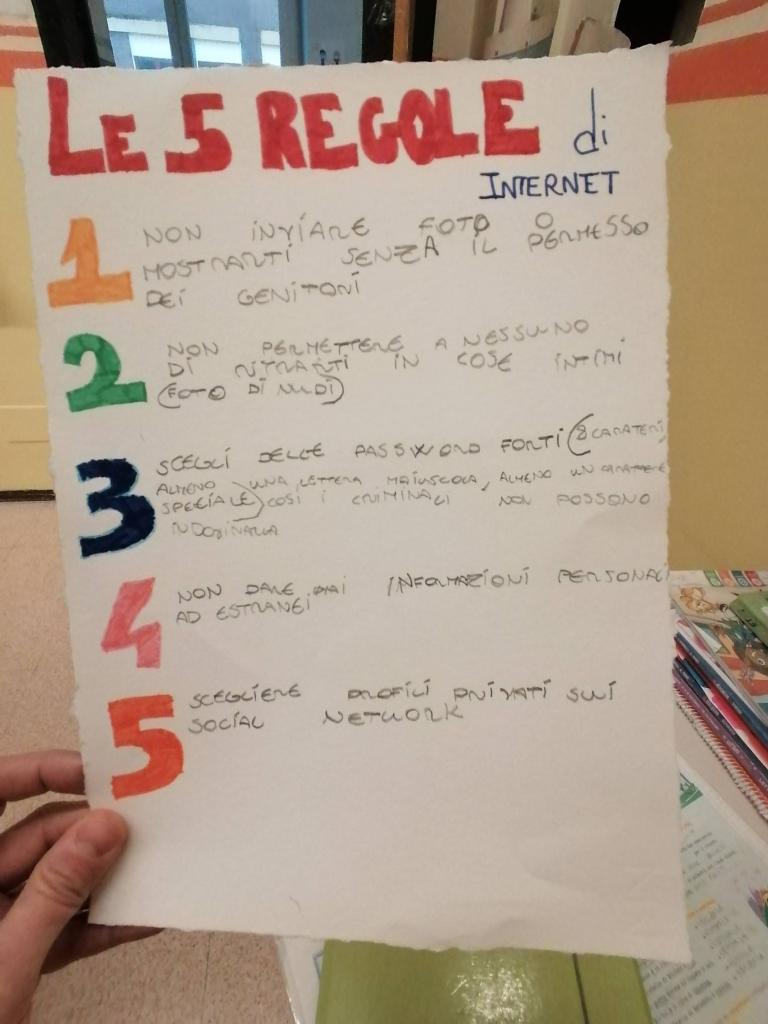 LE 5 REGOLE di
INTERNET
1 NON INVIARE FOTO O
MOSTRARTI SENZA IL PERMESSO
DEI GENITORI
2 NON PERMETTERE A NESSUNO
DI RITRARTI IN COSE INTIMI
(FOTO DI NUDI)
3 SCEGLI DELLE PASSWORD FORTI (8 CARATERI,
ALMENO UNA LETTERA MAIUSCOLA, ALMENO UN CARATTERE
SPECIALE) COSÌ I CRIMINALI NON POSSONO
INDOVINARLA
4 NON DARE MAI INFORMAZIONI PERSONALI
AD ESTRANEI
5 SCEGLIERE PROFILI PRIVATI SUI
SOCIAL NETWORK